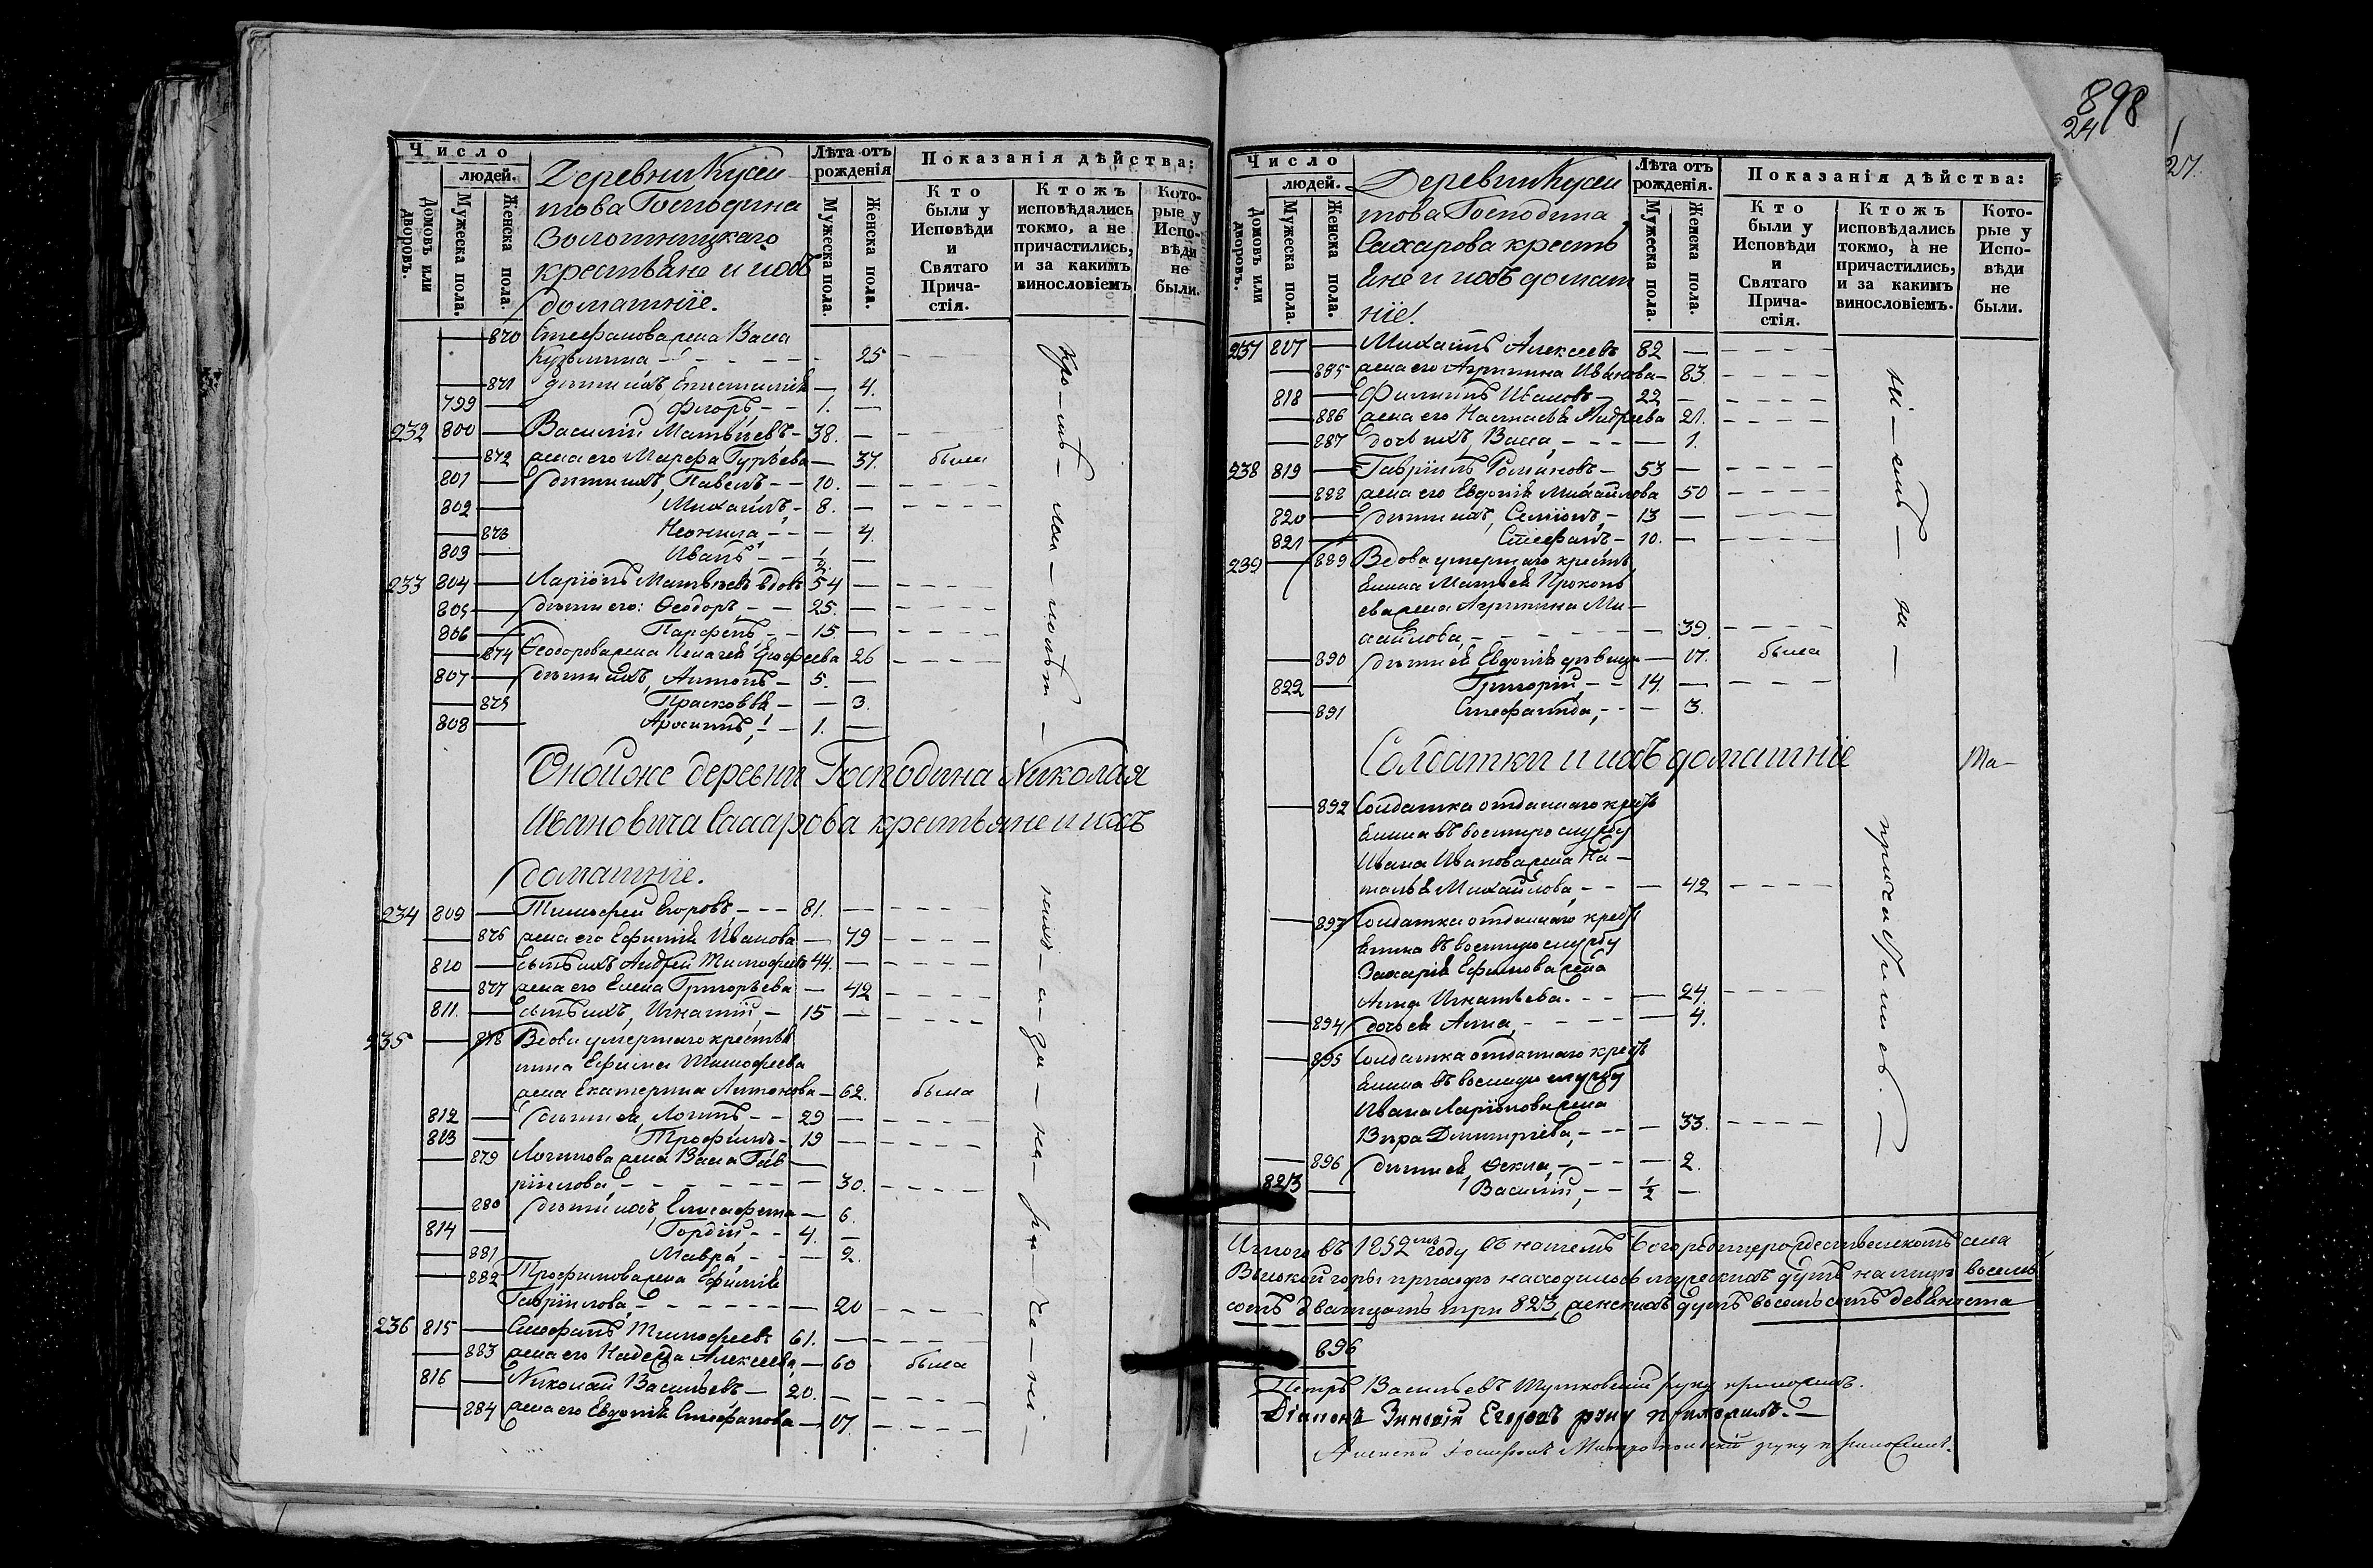 Число
людей.
Домовъ или дворовъ.
Мужеска пола.
Женска пола.
Деревни Кусели
това Господина
Золотницкаго
крестьяне и ихъ
домашніе.
Лѣта отъ
рожденія
Мужеска пола.
Женска пола.
Показанія дѣйства:
Кто
были у
Исповѣди
и
Святаго
Прича-
стія.
Ктожъ
исповѣдались
токмо, а не
причастились,
и за какимъ
винословіемъ
Кото-
рые у
Испо-
вѣди
не
были.
870 Стефанова жена Васса
Кузьмина - - - 25 - - -
871 дѣти ихъ, — 4.
799 — Флоръ, - - 1. —
232 800 — Василій Матвѣевъ - 38. — - - -
872 жена его Марфа Гурьева — 37. была
801 — дѣти ихъ, Павелъ - - 10. — - - -
802 — Михаилъ, - 8. — - - -
873 Неонила - - — 4.
803 — Иванъ - - 1/2 —
233 804 — Ларіонъ Матвѣевъ вдовъ 54 — - - -
805 — дѣти его: Ѳеодоръ - - 25. — - - -
806 — Парфенъ, - - 15. — - - -
874 Ѳеодорова жена Пелагея Ерофеева 26 - - -
807 — дѣти ихъ, Антонъ - 5. —
875 Прасковья - — 3.
808 — - - 1. —
Оной же деревни Господина Николая
Ивановича Сахарова крестьяне и ихъ
домашніе.
234 809 — Тимофей Егоровъ, - - - 81. — - - -
876 жена его Ефимія Иванова — 79 - - -
810 — сынъ ихъ Андрей Тимофеевъ 44. — - - -
877 жена его Елена Григорьева — 42 - - -
811. — сынъ ихъ, Игнатій, - 15 — - - -
235 — 878 Вдова умершаго крестья
нина Ефима Тимофеева
жена Екатерина Антонова — 62. была
812 — дѣти ея, Логинъ - - 29 — - - -
813 — Трофимъ - 19 — - - -
879 Логинова жена Васса Гав
ріилова, - - - — 30. - - -
880 дѣти ихъ, Елисафета — 6.
814 — Гордій, - - 4. —
881 Мавра, - - — 2.
882 Трофимова жена Ефимія
Гавріилова, - - - — 20 - - -
236 815 — Стефанъ Тимофеевъ 61. — - - -
883 жена его Надежда Алексѣева, — 60 была
816 — Николай Васильевъ — 20. — - - -
884 жена его Евдокія Стефанова — 17. - - -
898
24
27.
Число
людей.
Домовъ или дворовъ.
Мужеска пола.
Женска пола.
Деревни Кусели
това Господина
Сахарова кресть
яне и ихъ домаш
ніе.
Лѣта отъ
рожденія.
Мужеска пола.
Женска пола.
Показанія дѣйства:
Кто
были у
Исповѣди
и
Святаго
Прича-
стія.
Ктожъ
исповѣдались
токмо, а не
причастились,
и за какимъ
винословіемъ.
Кото-
рые у
Испо-
вѣди
не
были.
237 817 — Михаилъ Алексеевъ 82 — - - -
885 жена его Агрипина Иванова — 83. - - -
818 — Филиппъ Ивановъ - 22 — - - -
886 жена его Настасья Андреева 21. - - -
887 дочь ихъ, Васса, - - - — 1.
238 819 — Гавріилъ Романовъ - 53 — - - -
888 жена его Евдокія Михайлова 50 - - -
820 — дѣти ихъ, Семіонъ, - 13 — - - -
821 — Стефанъ - 10. — - - -
239 — 889 Вдова умершаго кресть
янина Матвея Прокопь
ева жена Агрипина Ми-
хайлова, - - - — 39. - - -
890 дѣти ея, Евдокія дѣвица — 17. была
822 — Григорій, - - 14. — - - -
891 Стефанида, - - — 3.
Солдатки и ихъ домашніе
892 Солдатка отданнаго кресть
янина въ военную службу
Ивана Иванова жена На-
талья Михайлова, - - — 42 - - -
893 Солдатка отданнаго кресть
янина въ военную службу
Захарія Ефимова жена
Анна Игнатьева. - - - — 24. - - -
894 дочь ея Анна, - - - — 4.
895 Солдатка отданнаго кресть
янина въ военную службу
Ивана Ларіонова жена
Вѣра Димитріева, - - - — 33. - - -
896 дѣти ея, Ѳекла, - - - — 2.
823 — Василій, - - 1/2 —
Итого въ 1852мъ году въ нашемъ Богородицерождественскомъ села
Высокой горы приходѣ находилось мужескихъ душъ налицо восемь
сотъ двадцать три 823, женскихъ душъ восемь сотъ девяноста
896
Петръ Васильевъ руку приложилъ.
Діаконъ Зиновій Егоровъ руку приложилъ. —
руку приложилъ.